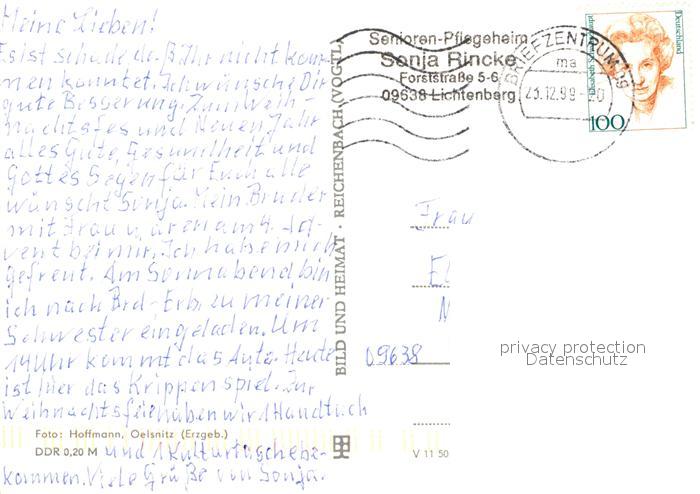 Meine Lieben!
Es ist schade, daß Ihr nicht kom-
men konntet. Ich wünsche Dir
gute Besserung. Zum Weih-
nachtsfes und Neuen Jahr
alles Gute, Gesundheit und
Gottes Segen für Euch alle
wünscht Sonja. Mein Bruder
mit Frau waren am 4. Ad-
vent bei mir. Ich habe mich
gefreut. Am Sonnabend bin
ich nach Brd-Erb. zu meiner
Schwester eingeladen. Um
14 Uhr kommt das Auto. Heute
ist hier das Krippenspiel. Zur
Weihnachtsfeier haben wir 1 Handtuch
und 1 Kulturtasche be-
kommen. Viele Grüße von Sonja.
Foto: Hoffmann, Oelsnitz (Erzgeb.)
DDR 0,20 M
BILD UND HEIMAT · REICHENBACH (VOGTL)
V 11 50
Senioren-Pflegeheim
Sonja Rincke
Forststraße 5-6
09638 Lichtenberg
BRIEFZENTRUM 09
ma
23.12.99-20
Deutschland
Elisabeth Schwarzhaupt
100
Frau
09638
privacy protection
Datenschutz